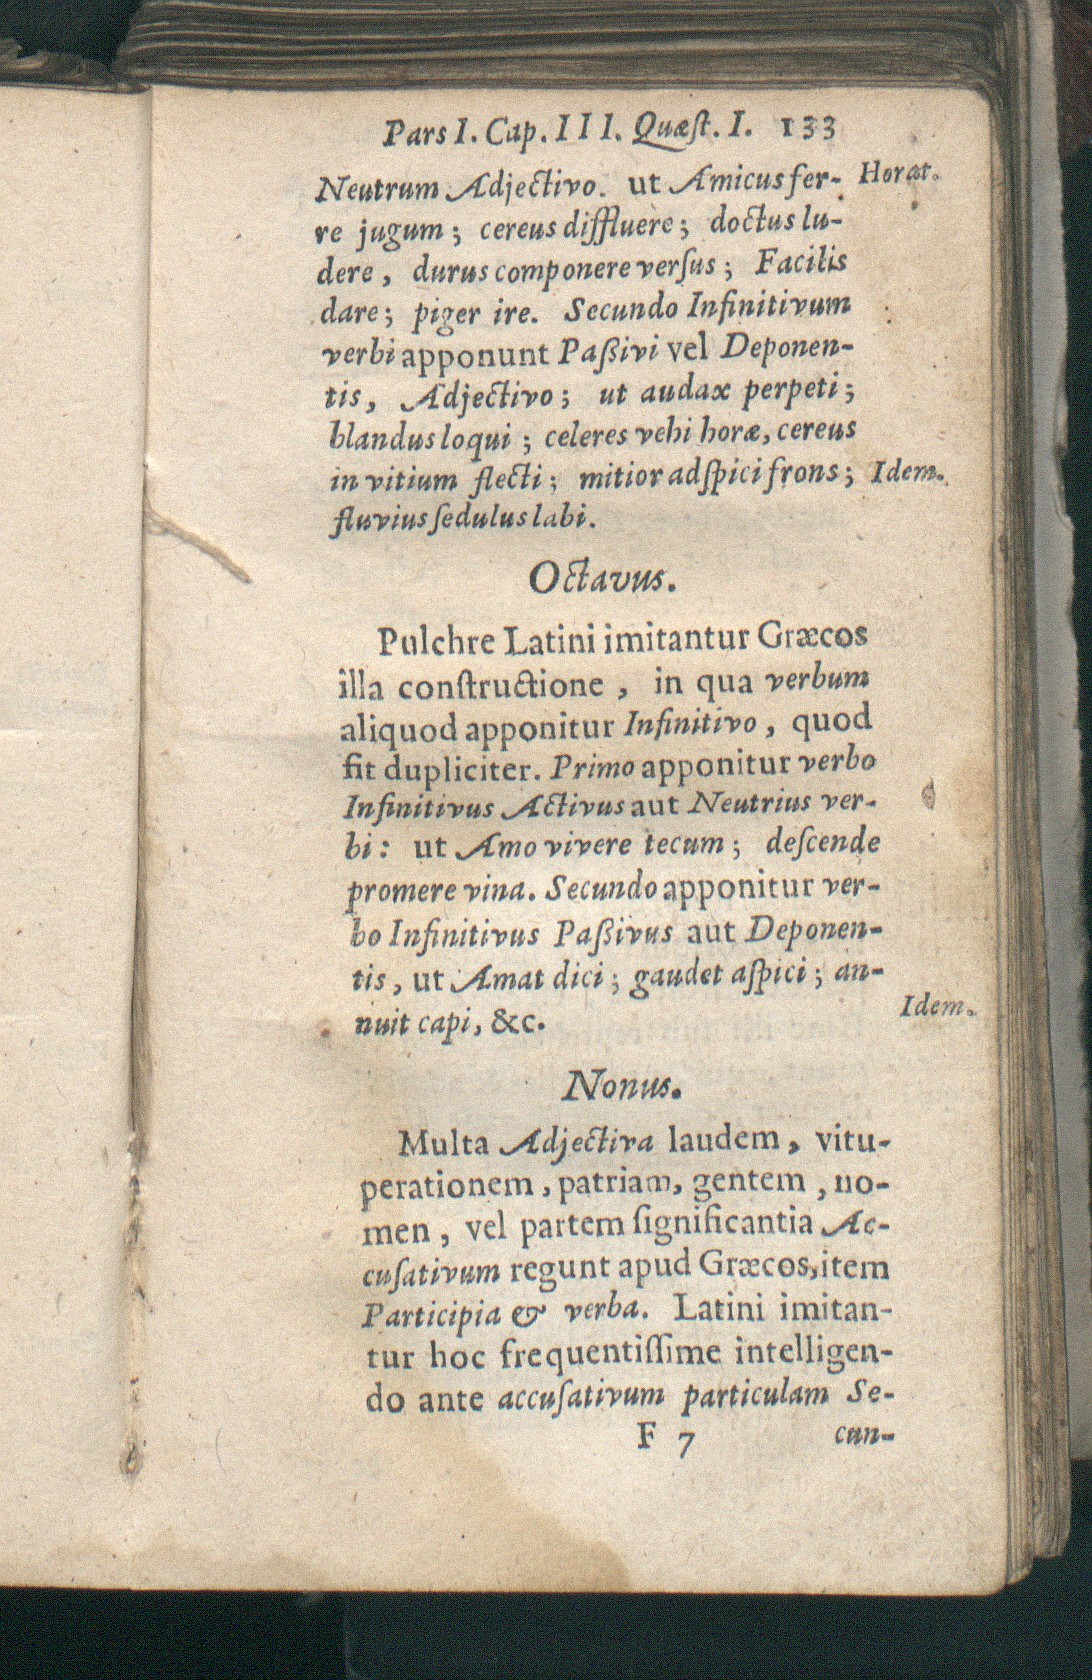 Pars I. Cap. III. Quæſt. I. 133
Neutrum Adjectivo. ut Amicus fer- Horat.
re jugum; cereus diffluere; doctus lu-
dere, durus componere verſus; Facilis
dare; piger ire. Secundo Infinitivum
verbi apponunt Paßivi vel Deponen-
tis, Adjectivo; ut audax perpeti;
blandus loqui; celeres vehi horæ, cereus
in vitium flecti; mitior adſpici frons; Idem.
fluvius ſedulus labi.
Octavus.
Pulchre Latini imitantur Græcos
illa conſtructione, in qua verbum
aliquod apponitur Infinitivo, quod
fit dupliciter. Primo apponitur verbo
Infinitivus Activus aut Neutrius ver-
bi: ut Amo vivere tecum; deſcende
promere vina. Secundo apponitur ver-
bo Infinitivus Paßivus aut Deponen-
tis, ut Amat dici; gaudet aſpici; an-
nuit capi, &c. Idem.
Nonus.
Multa Adjectiva laudem, vitu-
perationem, patriam, gentem, no-
men, vel partem ſignificantia Ac-
cuſativum regunt apud Græcos, item
Participia & verba. Latini imitan-
tur hoc frequentiſſime intelligen-
do ante accuſativum particulam Se-
F 7 cun-